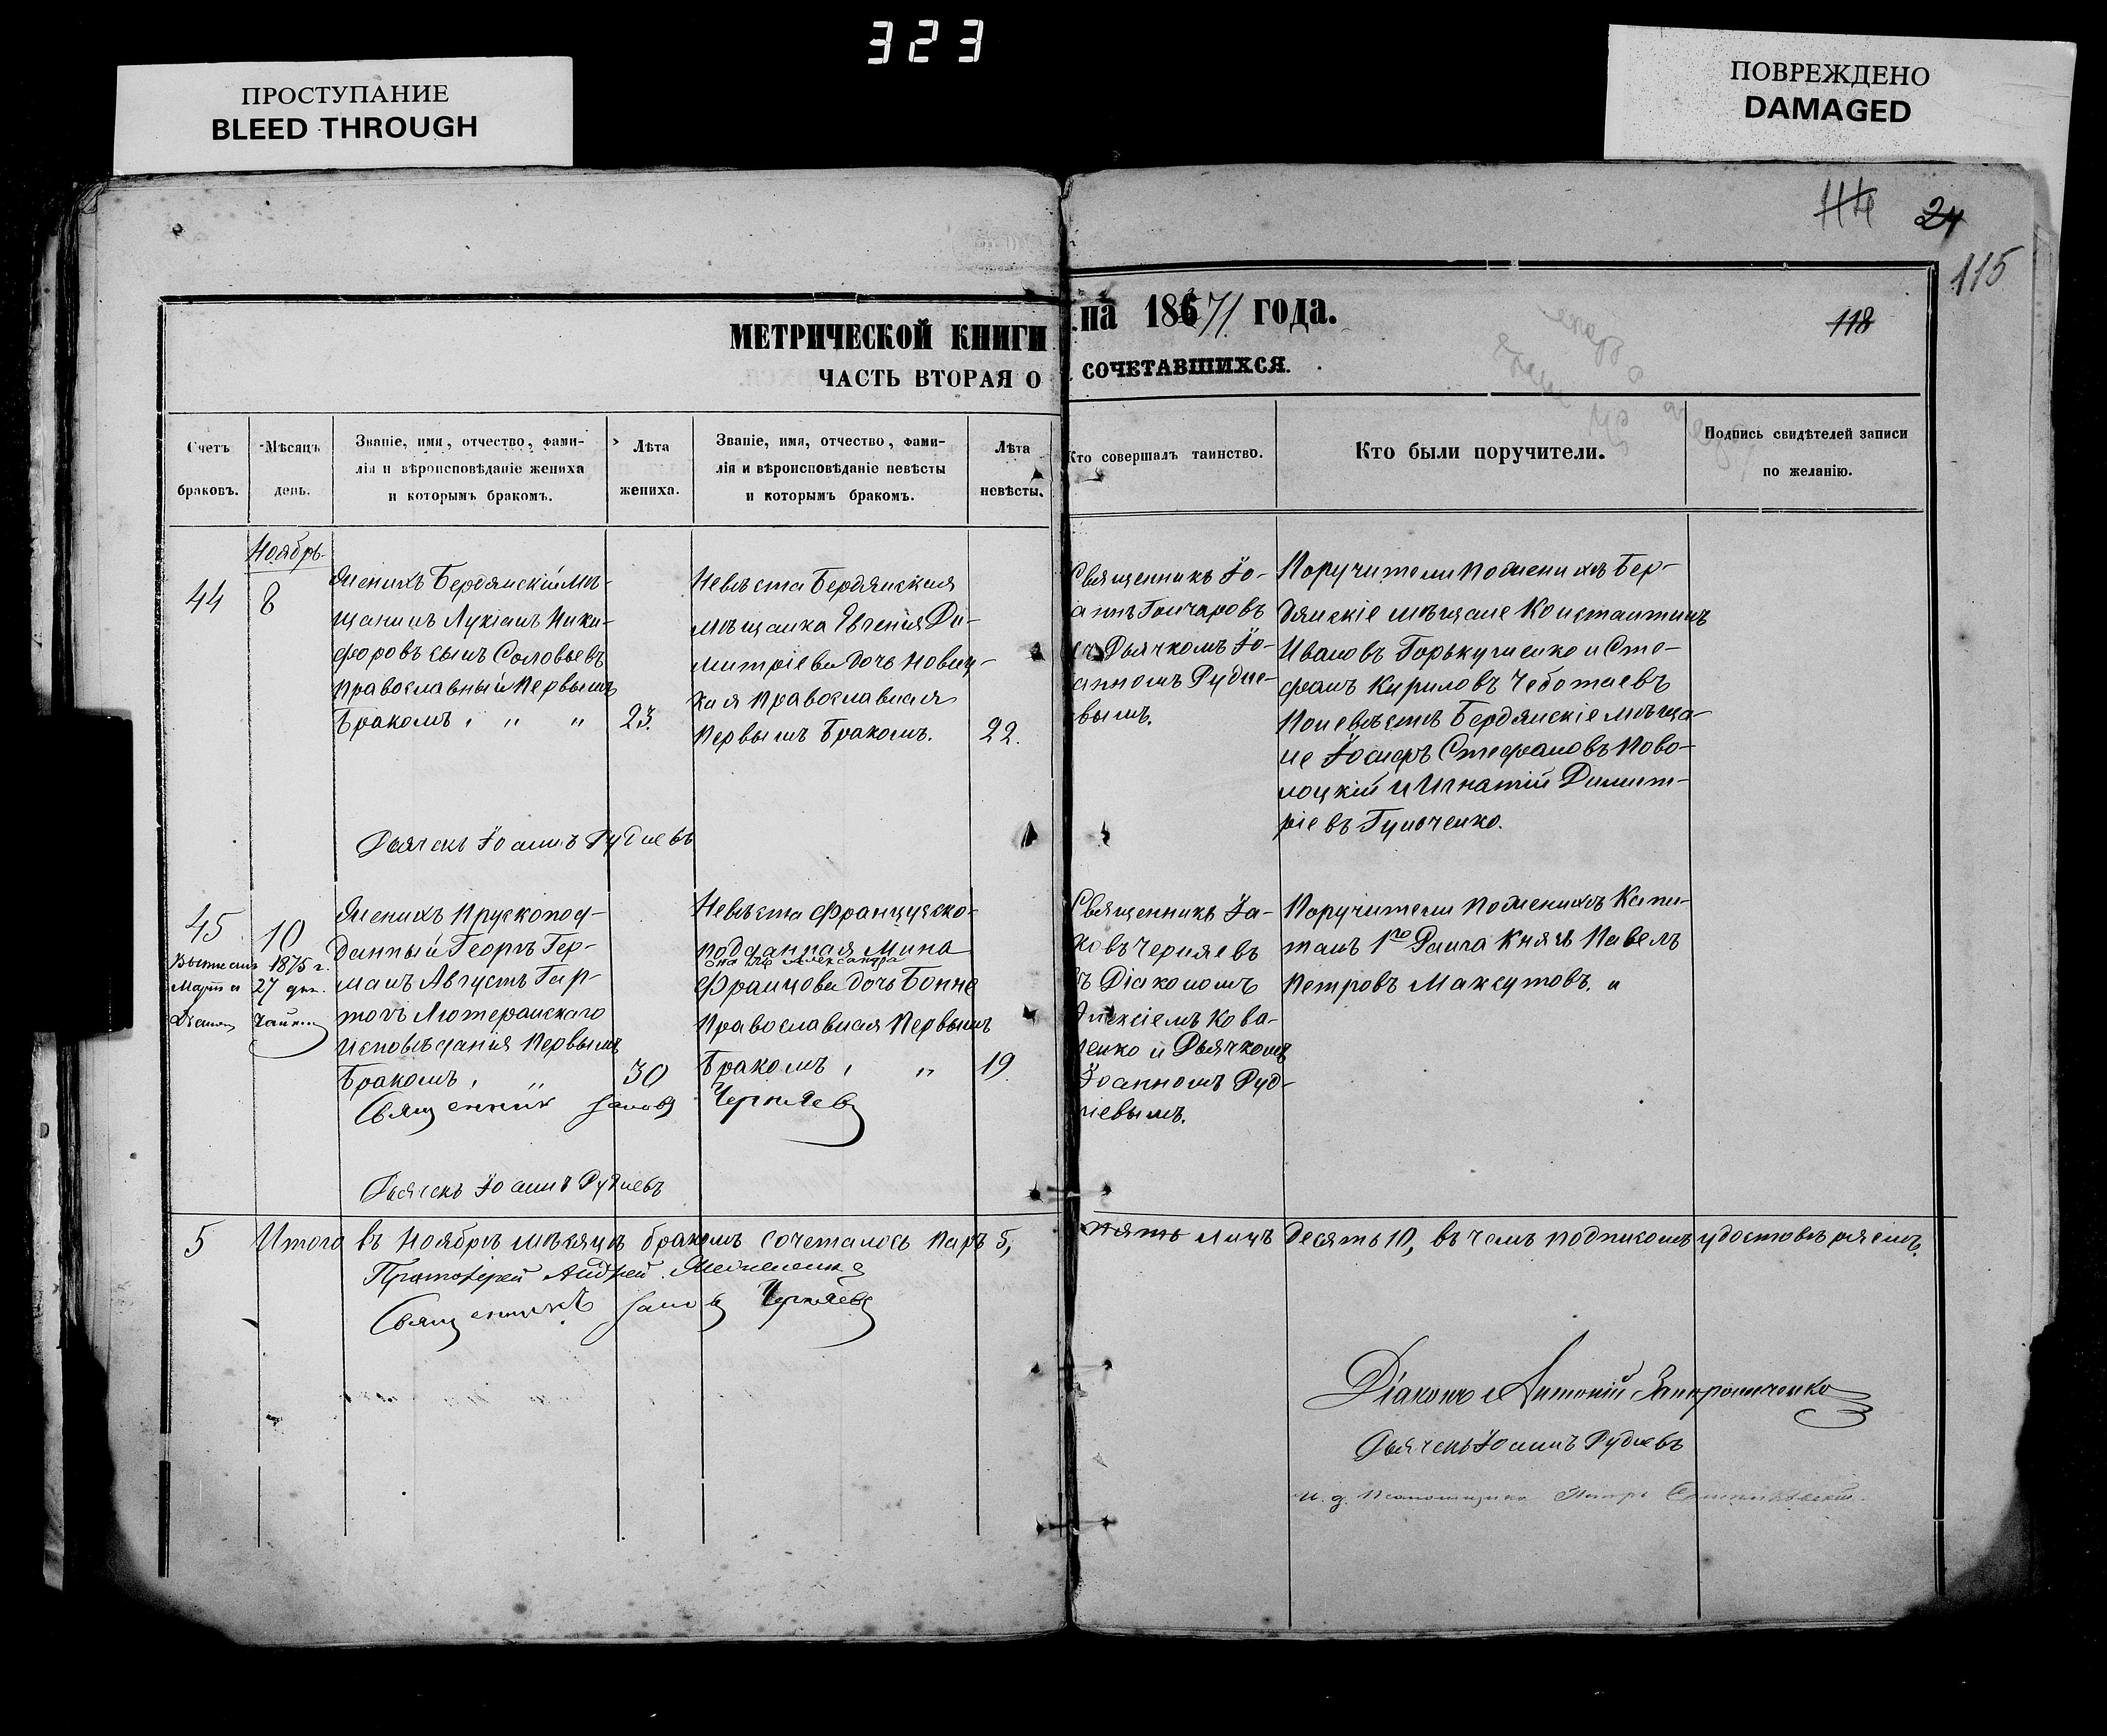 323
ПРОСТУПАНИЕ
BLEED THROUGH
ПОВРЕЖДЕНО
DAMAGED
114 24
115
118
МЕТРИЧЕСКОЙ КНИГИ на 1871 года.
ЧАСТЬ ВТОРАЯ О СОЧЕТАВШИХСЯ.
Счетъ
браковъ.
Мѣсяцъ
день.
Званіе, имя, отчество, фами-
лія и вѣроисповѣданіе жениха
и которымъ бракомъ.
Лѣта
жениха.
Званіе, имя, отчество, фами-
лія и вѣроисповѣданіе невѣсты
и которымъ бракомъ.
Лѣта
невѣсты.
Кто совершалъ таинство.
Кто были поручители.
Подпись свидѣтелей записи
по желанію.
44
Ноябрь
8
Женихъ Бердянскій мѣ-
щанинъ Лукіанъ Ники-
форовъ сынъ Соловьевъ
православный первымъ
Бракомъ, „ „
23.
Невѣста Бердянская
мѣщанка Евгенія Ди-
митріева дочь Новиц-
кая Православная
Первымъ Бракомъ.
22.
Священникъ Іо-
аннъ Гончаровъ
съ Дьячкомъ Іо-
анномъ Рудне-
вымъ.
Поручители по женихѣ Бер-
дянскіе мѣщане Константинъ
Ивановъ Горькушенко и Сте-
фанъ Кириловъ Чеботаевъ
По невѣстѣ Бердянскіе мѣща-
не Іосифъ Стефановъ Ново-
лоцкій и Игнатій Димит-
ріевъ Гунченко.
Дьячекъ Іоаннъ Рудневъ
45
10
Выписанъ 1875 г.
Марта 27 дня.
Діаконъ Чайкин
Женихъ Прускопод-
данный Георгъ Гер-
манъ Августъ Гар-
тогъ Лютеранскаго
исповѣданія первымъ
Бракомъ, „
30
Невѣста Французско-
подданная Мина
она же Александра
Францова дочь Бонне
Православная Первымъ
Бракомъ, „
19.
Священникъ Іа-
ковъ Черняевъ
съ Діакономъ
Алексіемъ Кова-
ленко и Дьячкомъ
Іоанномъ Руд-
невымъ.
Поручители по женихѣ Капи-
танъ 1го Ранга Князь Павелъ
Петровъ Максутовъ. „
Священникъ Іаковъ Черняевъ
Дьячекъ Іоаннъ Рудневъ
5 Итого въ Ноябрѣ мѣсяцѣ бракомъ сочеталось паръ 5, пять лицъ Десять 10, въ чемъ подписомъ удостовѣряемъ.
Протоіерей Андрей
Священникъ Іаковъ Черняевъ
Діаконъ Антоній Запорощенко
Дьячекъ Іоаннъ Рудневъ
И. д. Псаломщика Петръ